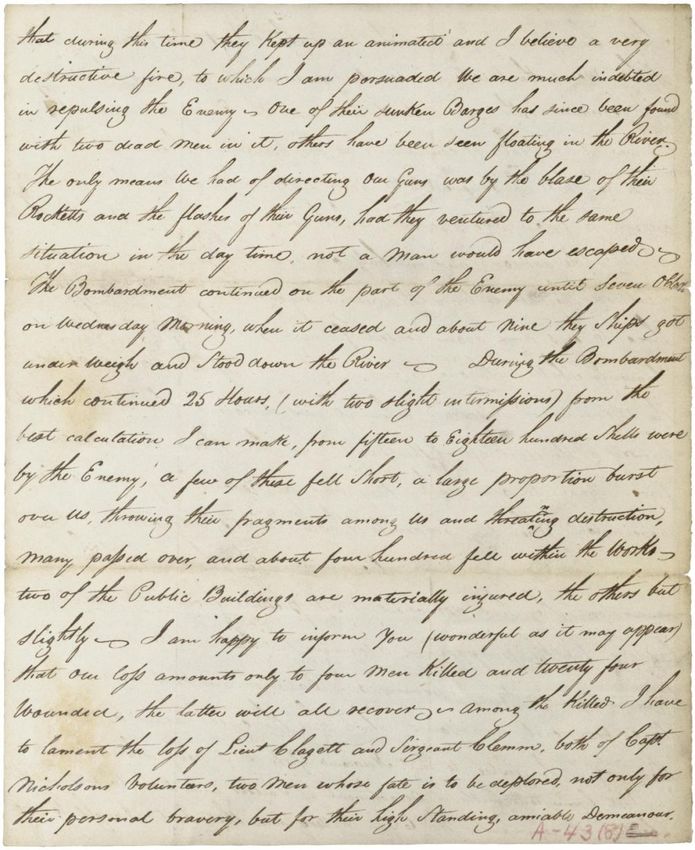 that during this time they kept up an animated and I believe a very
destructive fire, to which I am persuaded We are much indebted
in repulsing the Enemy ~ One of their sunken Barges has since been found
with two dead Men in it, others have been seen floating in the River.
The only means We had of directing Our Guns was by the blaze of their
Rocketts and the flashes of their Guns, had they ventured to the same
situation in the day time, not a Man would have escaped ~
The Bombardment continued on the part of the Enemy until Seven OClock
on Wednesday Morning, when it ceased and about Nine they Ships got
under Weigh and Stood down the River ~ During the Bombardment
which continued 25 Hours, (with two slight intermissions) from the
best calculation I can make, from fifteen to Eighteen hundred Shells were
by the Enemy, a few of these fell Short, a large proportion burst
over Us, throwing their fragments among Us and threatning destruction,
Many passed over, and about four hundred fell within the Works ~
two of the Public Buildings are materially injured, the others but
slightly ~ I am happy to inform You (wonderful as it may appear)
that our loss amounts only to four Men Killed and twenty four
Wounded, the latter will all recover ~ among the Killed I have
to lament the loss of Lieut Clagett and Sergeant Clemm, both of Capt.
Nicholsons Volunteers, two Men whose fate is to be deplored, not only for
their personal bravery, but for their high Standing, amiable Demeanour,
A-43(8)